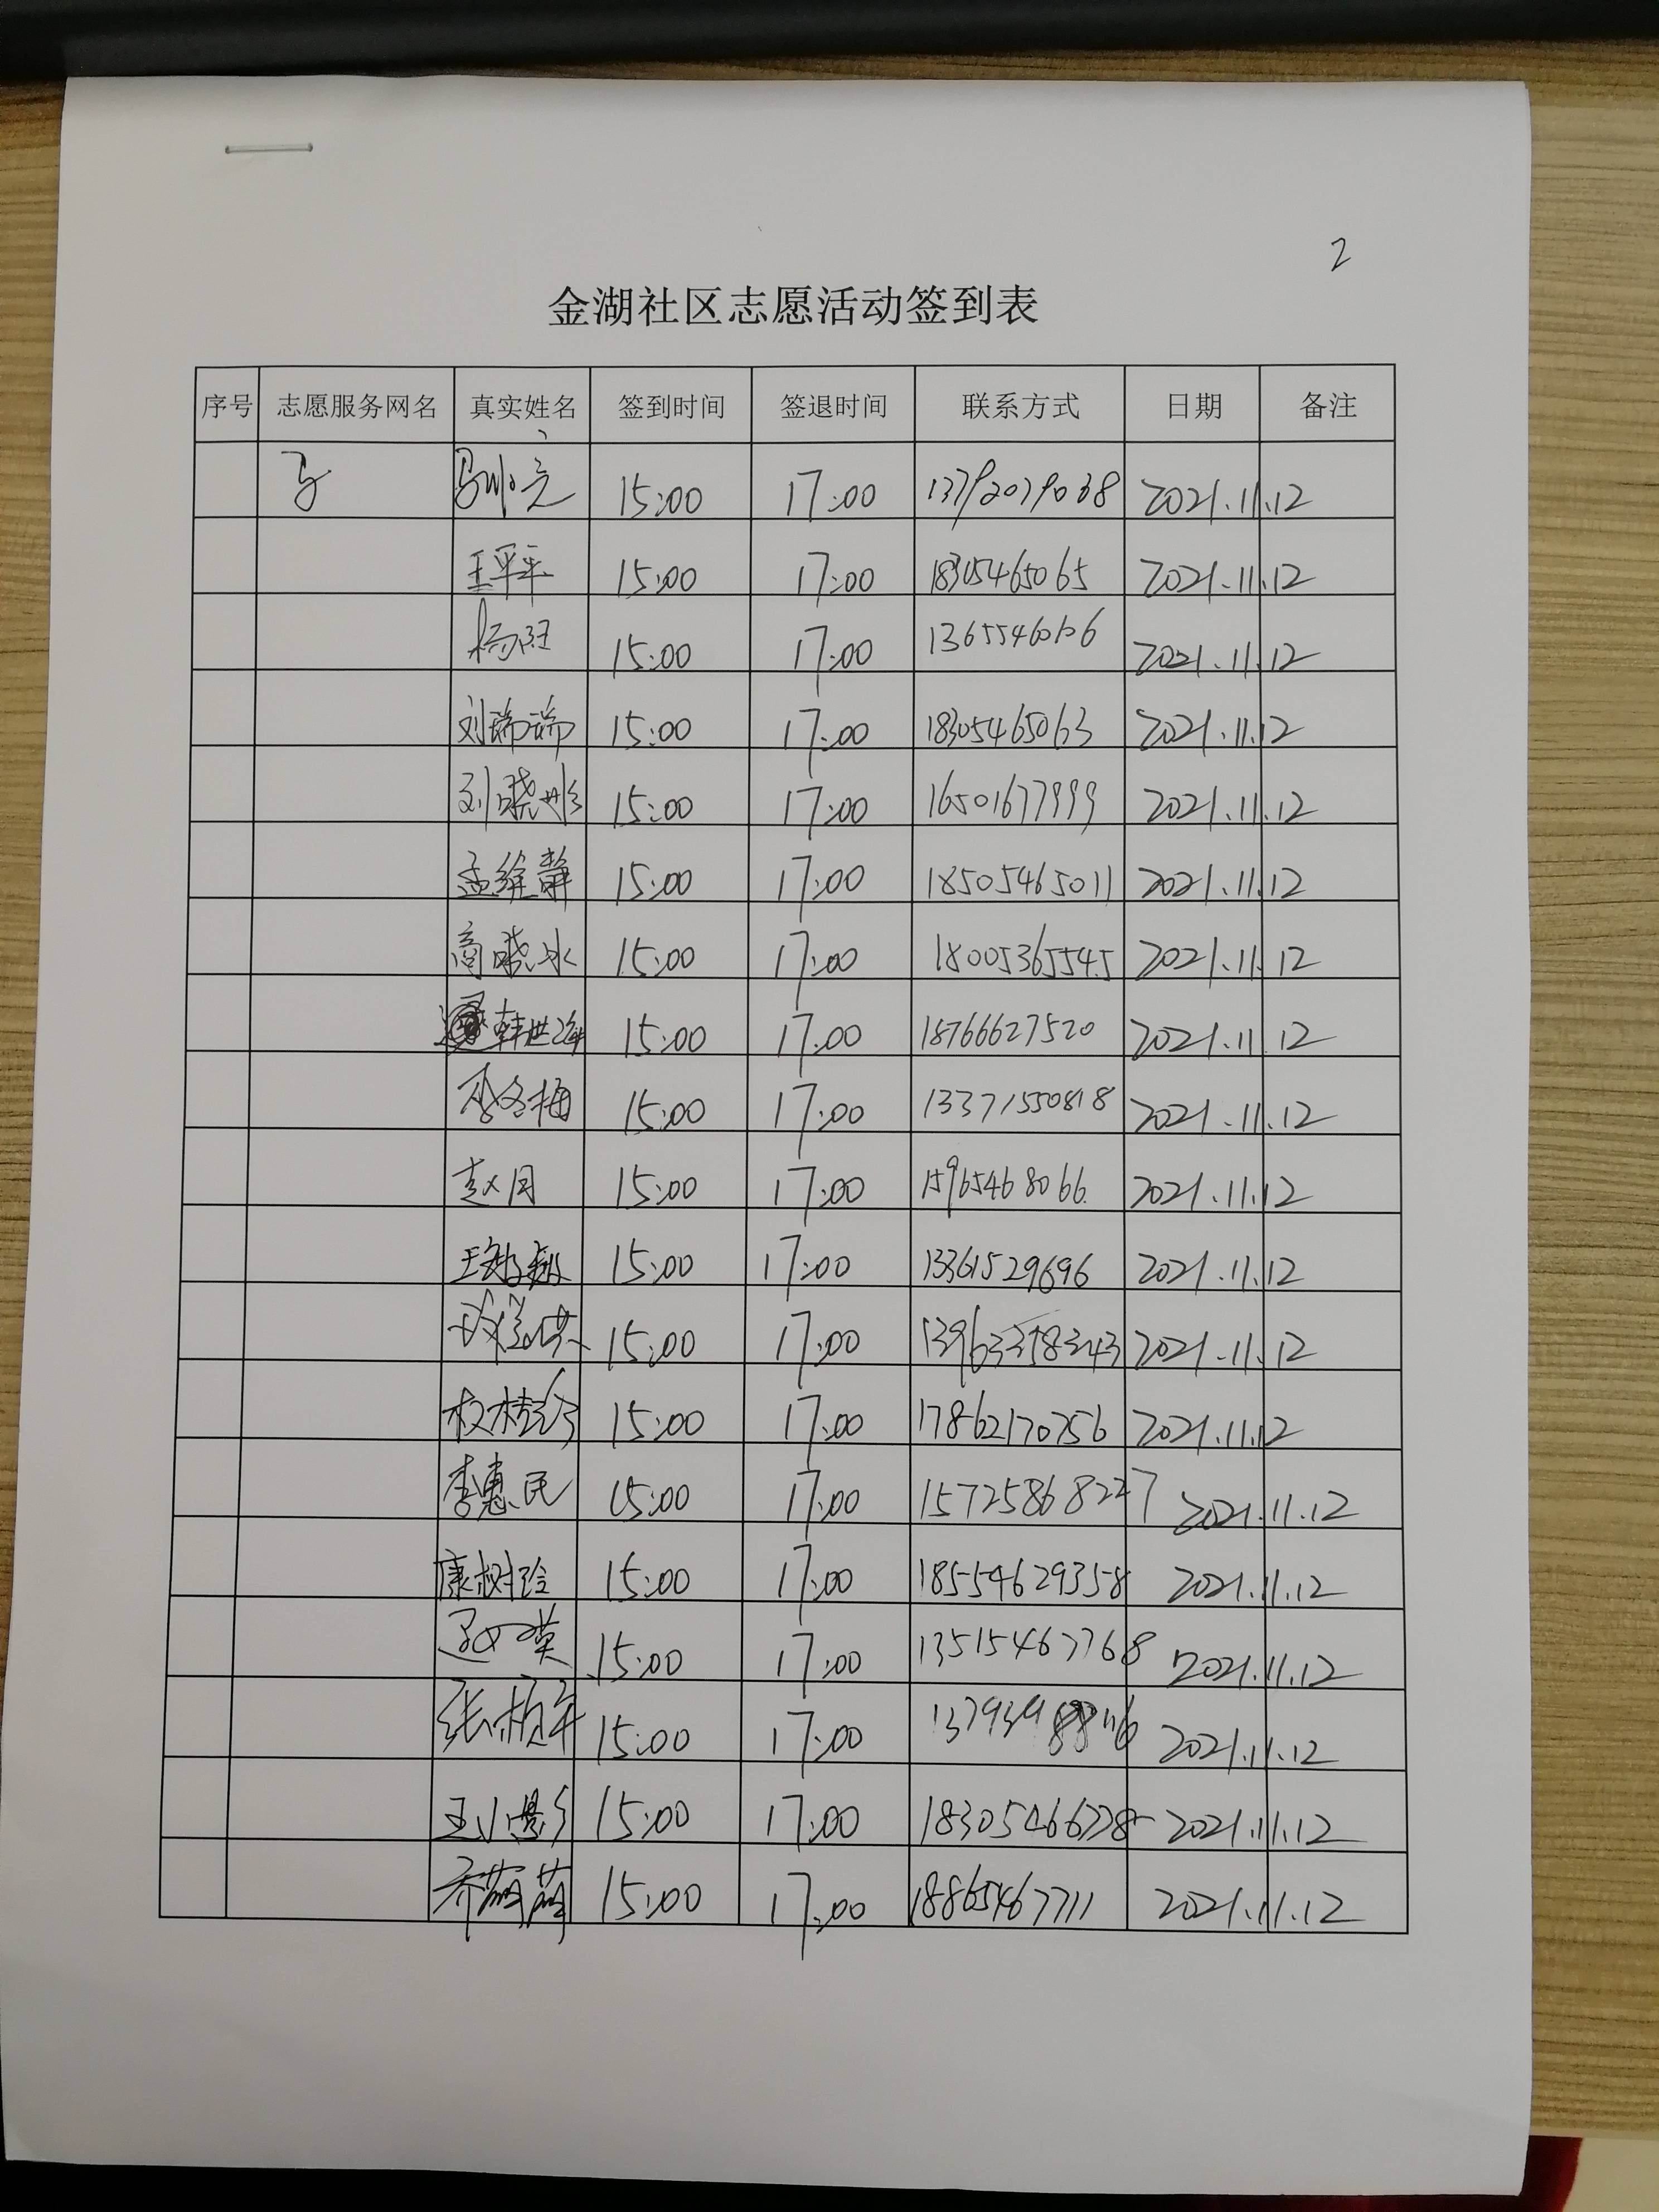 2
金湖社区志愿活动签到表
序号 志愿服务网名 真实姓名 签到时间 签退时间 联系方式 日期 备注
马 15:00 17:00 13792079038 2021.11.12
王平平 15:00 17:00 18305465065 2021.11.12
杨阳 15:00 17:00 2021.11.12
刘瑞瑞 15:00 17:00 18305465063 2021.11.12
刘晓彤 15:00 17:00 16501677999 2021.11.12
孟维静 15:00 17:00 18505465011 2021.11.12
商晓冰 15:00 17:00 18005365545 2021.11.12
韩世海 15:00 17:00 18766627520 2021.11.12
李冬梅 15:00 17:00 13371550818 2021.11.12
赵月 15:00 17:00 15965468066 2021.11.12
王敏敏 15:00 17:00 13361529696 2021.11.12
15:00 17:00 2021.11.12
15:00 17:00 17862170756 2021.11.12
李惠民 15:00 17:00 15725868227 2021.11.12
康树玲 15:00 17:00 18554629358 2021.11.12
15:00 17:00 13515467768 2021.11.12
15:00 17:00 2021.11.12
王小影 15:00 17:00 18305466778 2021.11.12
乔萌萌 15:00 17:00 18865467711 2021.11.12